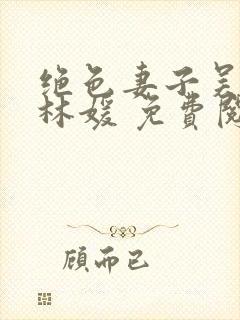 绝色妻子吴
林媛 免費閱
顾而已